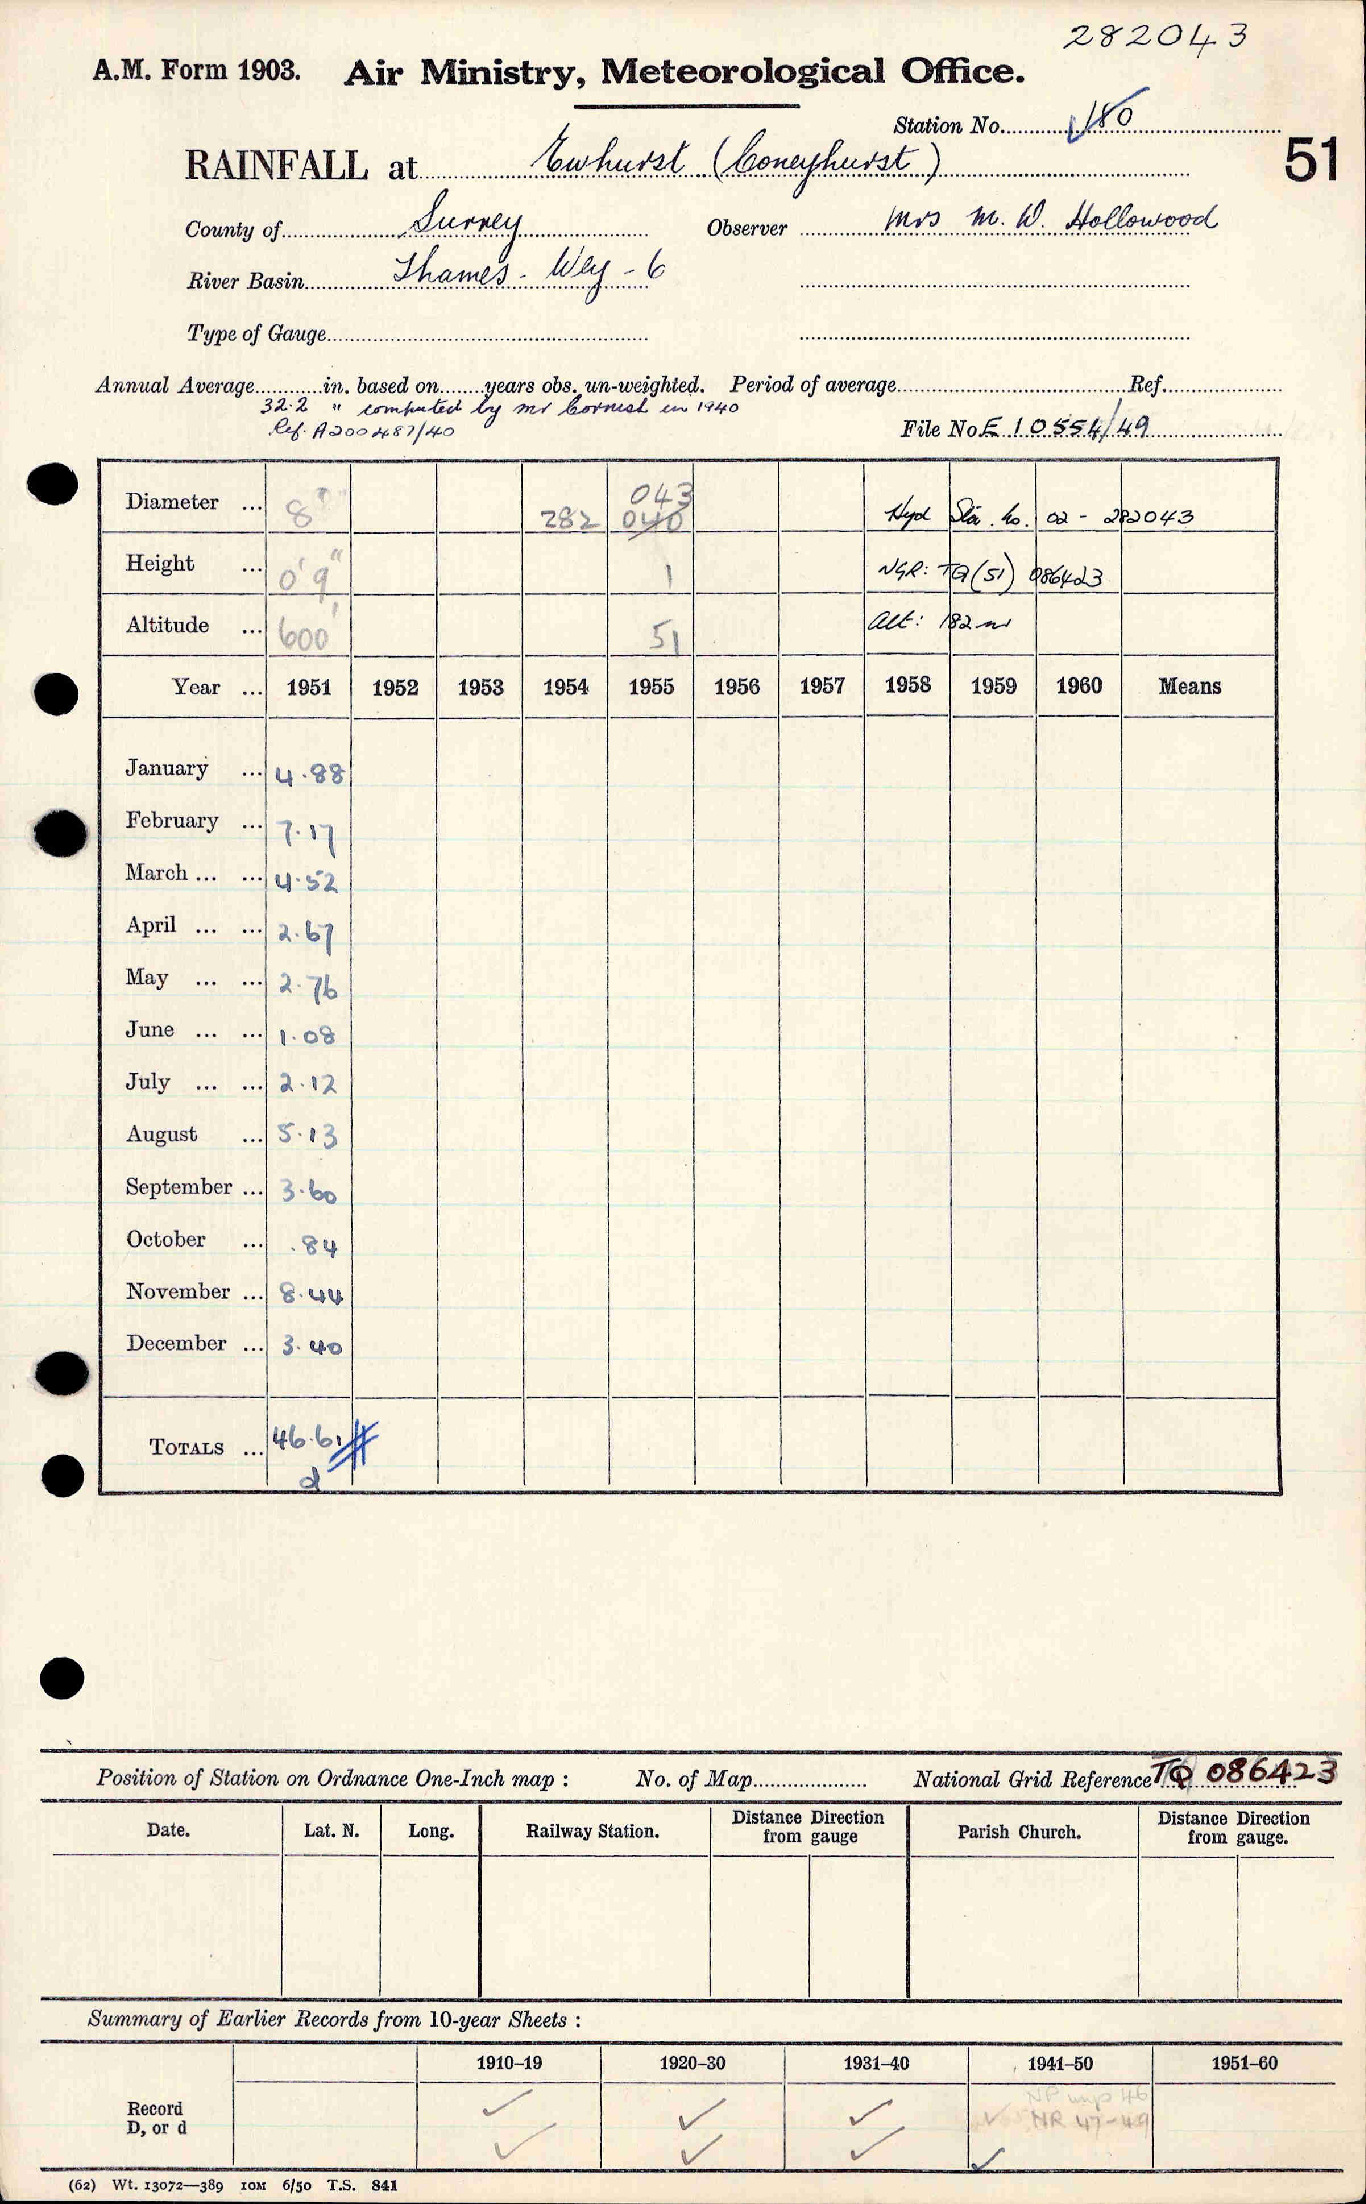 282043
A.M. Form 1903. Air Ministry, Meteorological Office.
Station No. 180
51
RAINFALL at Ewhurst (Coneyhurst)
County of Surrey Observer Mrs M. W. Hollowood
River Basin Thames - Wey - 6
Type of Gauge
Annual Average in. based on years obs. un-weighted. Period of average Ref.
32.2 " computed by Mr Cornish in 1940
Ref. A200487/40
File No. E 10554/49
Diameter ... 8" 282 040 043 Hyd Sta. No. 02 - 282043
Height ... 0' 9" 1 NGR: TQ (51) 086423
Altitude ... 600' 51 Alt: 182 m
Year ... 1951 1952 1953 1954 1955 1956 1957 1958 1959 1960 Means
January ... 4.88
February ... 7.17
March ... ... 4.52
April ... ... 2.67
May ... ... 2.76
June ... ... 1.08
July ... ... 2.12
August ... 5.13
September ... 3.60
October ... .84
November ... 8.44
December ... 3.40
TOTALS ... 46.61
d
Position of Station on Ordnance One-Inch map : No. of Map National Grid Reference TQ 086423
Date. Lat. N. Long. Railway Station. Distance Direction from gauge Parish Church. Distance Direction from gauge.
Summary of Earlier Records from 10-year Sheets :
1910-19 1920-30 1931-40 1941-50 1951-60
Record
D, or d
NR 47-49
(62) Wt. 13072—389 10M 6/50 T.S. 841